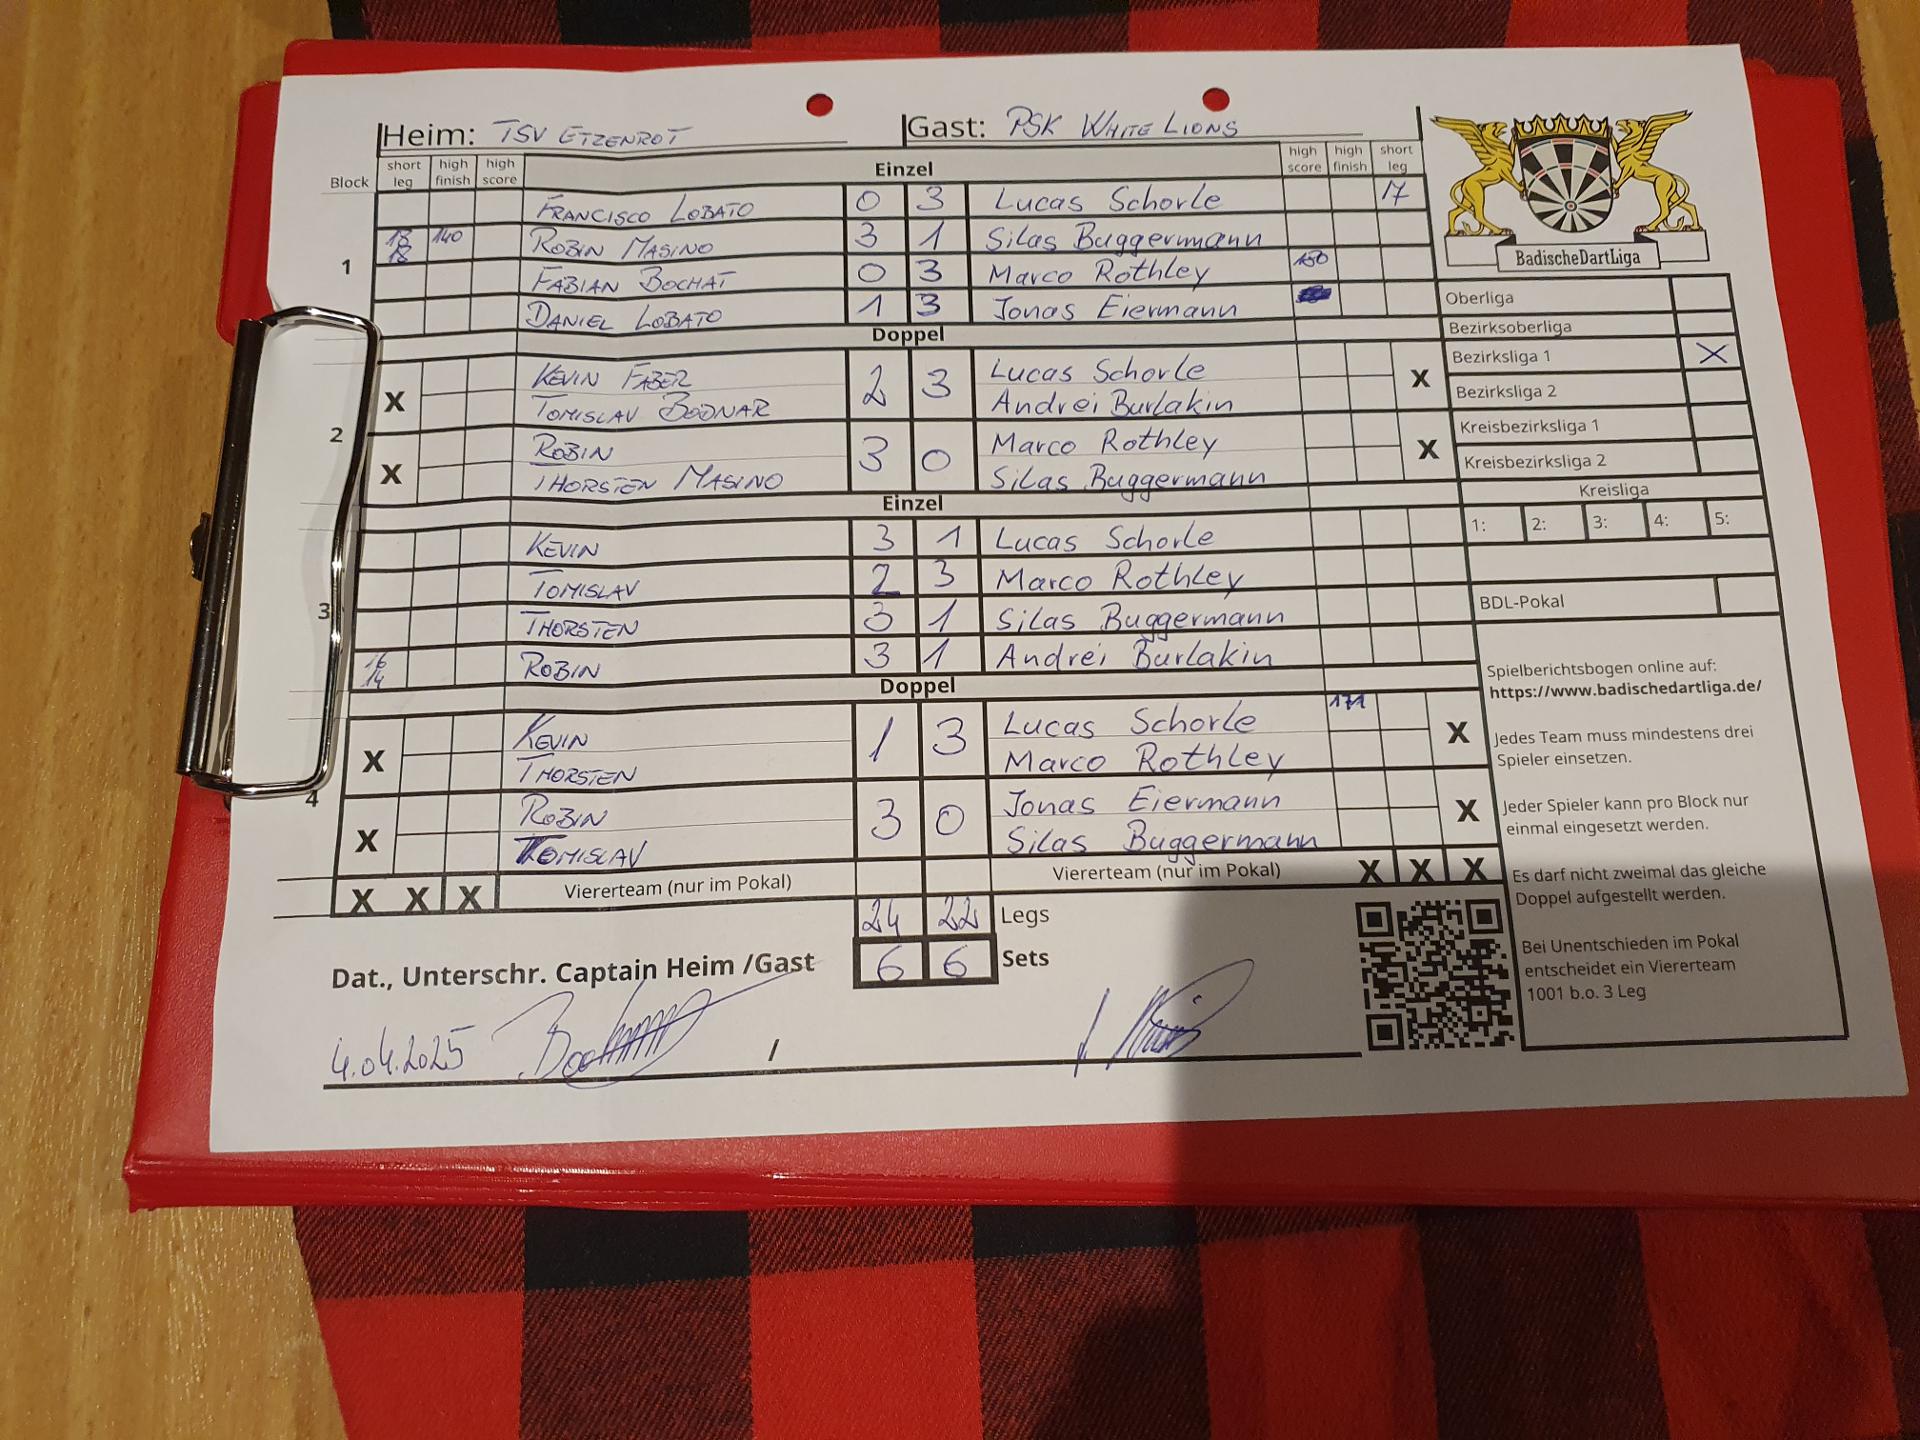 Heim: TSV ETZENROT Gast: PSK WHITE LIONS
Block short leg high finish high score Einzel high score high finish short leg
FRANCISCO LOBATO 0 3 Lucas Schorle 17
18 18 140 ROBIN MASINO 3 1 Silas Buggermann
1
FABIAN BOCHAT 0 3 Marco Rothley 180
DANIEL LOBATO 1 3 Jonas Eiermann
Doppel
X KEVIN FABER 2 3 Lucas Schorle X
TOMISLAV BODNAR Andrei Burlakin
2
X ROBIN 3 0 Marco Rothley X
THORSTEN MASINO Silas Buggermann
Einzel
KEVIN 3 1 Lucas Schorle
TOMISLAV 2 3 Marco Rothley
3
THORSTEN 3 1 Silas Buggermann
16 14 ROBIN 3 1 Andrei Burlakin
Doppel
X KEVIN 1 3 Lucas Schorle 171 X
THORSTEN Marco Rothley
4
X ROBIN 3 0 Jonas Eiermann X
TOMISLAV Silas Buggermann
X X X Viererteam (nur im Pokal) Viererteam (nur im Pokal) X X X
24 22 Legs
6 6 Sets
Dat., Unterschr. Captain Heim /Gast
4.04.2025 /
BadischeDartLiga
Oberliga
Bezirksoberliga
Bezirksliga 1 X
Bezirksliga 2
Kreisbezirksliga 1
Kreisbezirksliga 2
Kreisliga
1: 2: 3: 4: 5:
BDL-Pokal
Spielberichtsbogen online auf:
https://www.badischedartliga.de/
Jedes Team muss mindestens drei
Spieler einsetzen.
Jeder Spieler kann pro Block nur
einmal eingesetzt werden.
Es darf nicht zweimal das gleiche
Doppel aufgestellt werden.
Bei Unentschieden im Pokal
entscheidet ein Viererteam
1001 b.o. 3 Leg